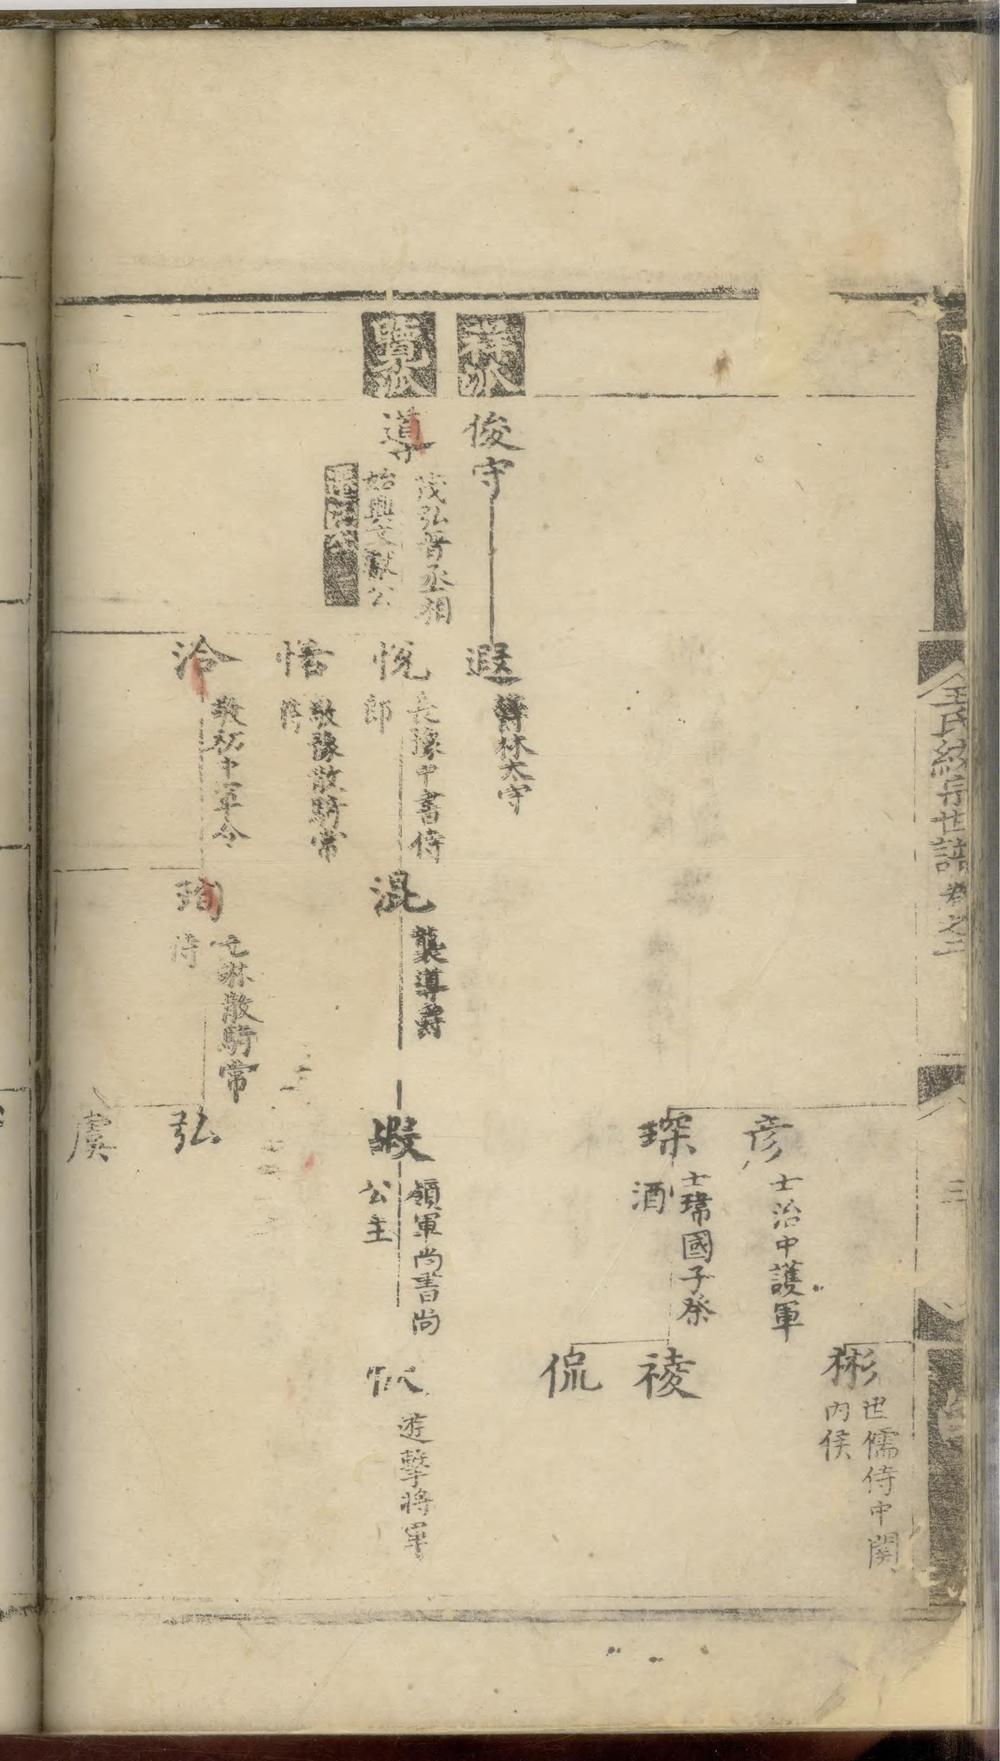 王氏統宗世譜 卷之二
三
彬
世儒侍中関
内侯
彦
士治中護軍
琛
士瑋國子祭
酒
祾
侃
祥派
俊守
遐
欝林太守
覽派
導
茂弘晋丞相
始興文獻公
悅
長豫中書侍
郎
混
襲導爵
嘏
領軍尚書尚
公主
遊擊将軍
恬
敬豫散騎常
洽
敬初中軍令
珣
元琳散騎常
侍
弘
虞